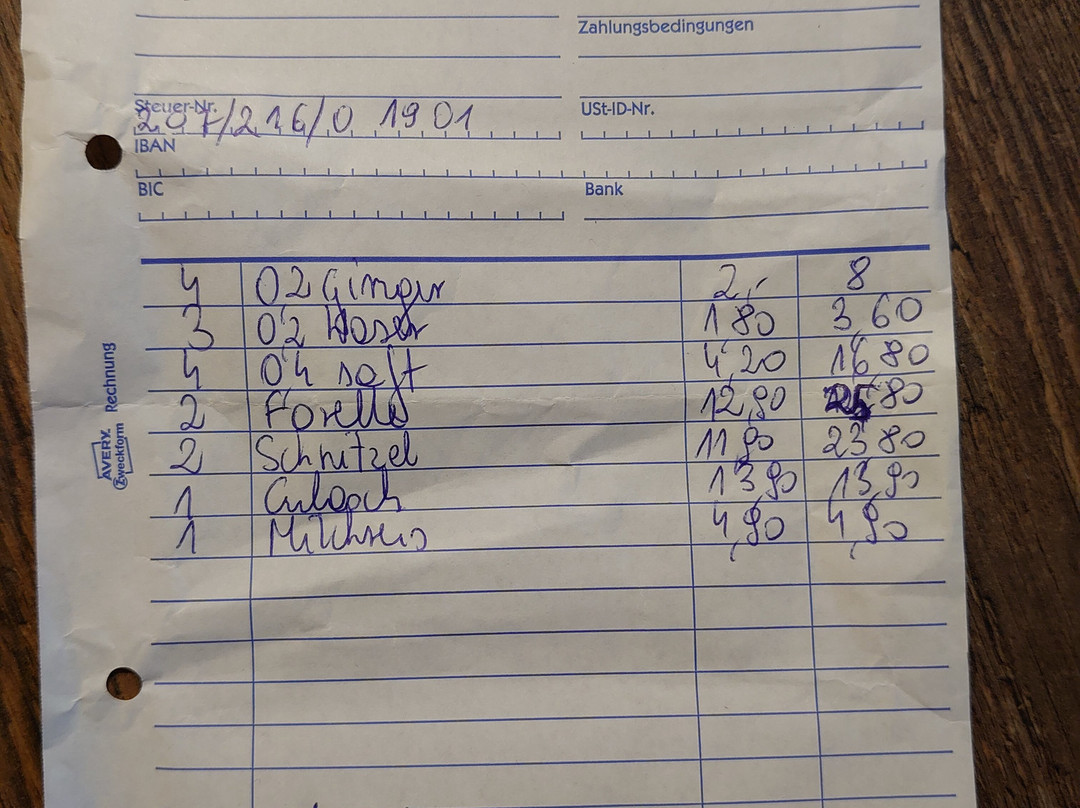 Zahlungsbedingungen
Steuer-Nr.
207/216/0 1901
USt-ID-Nr.
IBAN
BIC
Bank
4 02 Ginger 2,- 8
3 02 Waser 1 80 3,60
4 04 saft 4,20 16,80
2 Forelle 12,90 25,80
2 Schnitzel 11,90 23,80
1 13,90 13,90
1 Milchreis 4,90 4,90
AVERY Zweckform Rechnung